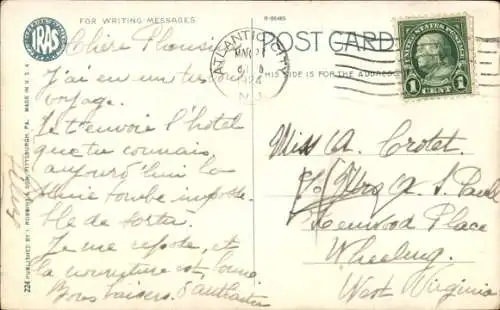 FOR WRITING MESSAGES
R-86485
POST CARD
THIS SIDE IS FOR THE ADDRESS
IRAS
ATLANTIC CITY
N.J.
UNITED STATES POSTAGE
1 CENT 1
Chère
J'ai eu un très bon
voyage.
Je t'envoie l'hotel
que tu connais,
aujourd'hui la
pluie tombe imposs
ble de sortir.
Je me repose, et
la nourriture est bonne
Bons baisers
Miss A. Crotet
Mrs A. S. Paull
Kenwood Place
Wheeling.
West Virginia
224 PUBLISHED BY I. ROBBINS & SON, PITTSBURGH, PA. MADE IN U.S.A.